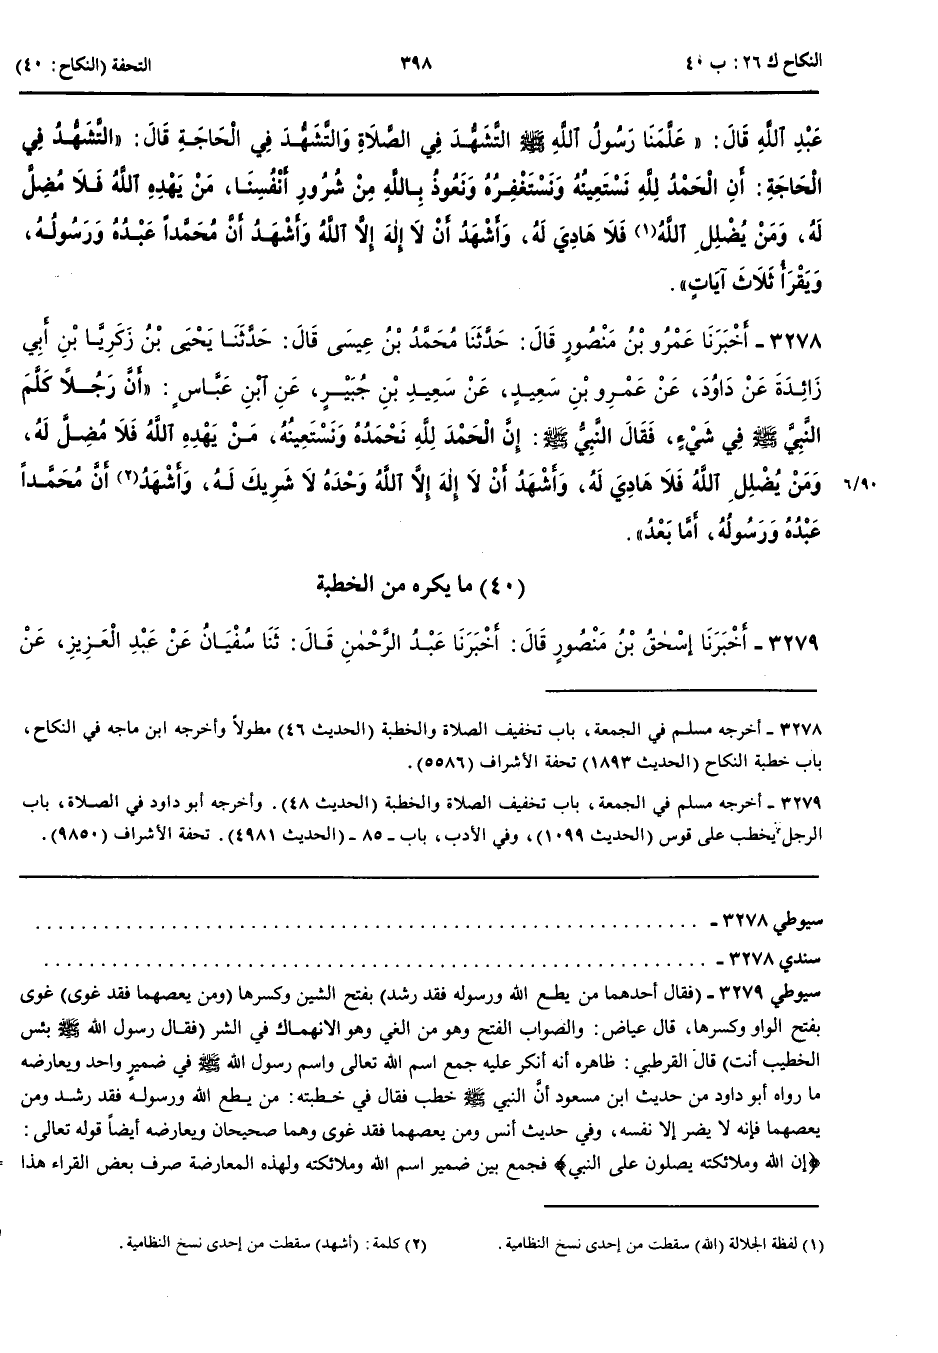 النكاح ك ٢٦: ب ٤٠
٣٩٨
التحفة (النكاح: ٤٠)
عَبْدِ ٱللَّهِ قَالَ: « عَلَّمَنَا رَسُولُ ٱللَّهِ ﷺ التَّشَهُّدَ فِي الصَّلَاةِ وَالتَّشَهُّدَ فِي الْحَاجَةِ قَالَ: «التَّشَهُّدُ فِي
الْحَاجَةِ: أَنِ الْحَمْدُ لِلَّهِ نَسْتَعِينُهُ وَنَسْتَغْفِرُهُ وَنَعُوذُ بِاللَّهِ مِنْ شُرُورِ أَنْفُسِنَا، مَنْ يَهْدِهِ ٱللَّهُ فَلَا مُضِلَّ
لَهُ، وَمَنْ يُضْلِلِ ٱللَّهُ(١) فَلَا هَادِيَ لَهُ، وَأَشْهَدُ أَنْ لَا إِلٰهَ إِلَّا ٱللَّهُ وَأَشْهَدُ أَنَّ مُحَمَّداً عَبْدُهُ وَرَسُولُهُ،
وَيَقْرَأُ ثَلَاثَ آيَاتٍ».
٣٢٧٨ ـ أَخْبَرَنَا عَمْرُو بْنُ مَنْصُورٍ قَالَ: حَدَّثَنَا مُحَمَّدُ بْنُ عِيسَى قَالَ: حَدَّثَنَا يَحْيَى بْنُ زَكَرِيَّا بْنِ أَبِي
زَائِدَةَ عَنْ دَاوُدَ، عَنْ عَمْرِو بْنِ سَعِيدٍ، عَنْ سَعِيدِ بْنِ جُبَيْرٍ، عَنِ ٱبْنِ عَبَّاسٍ: «أَنَّ رَجُلاً كَلَّمَ
النَّبِيَّ ﷺ فِي شَيْءٍ، فَقَالَ النَّبِيُّ ﷺ: إِنَّ الْحَمْدَ لِلَّهِ نَحْمَدُهُ وَنَسْتَعِينُهُ، مَنْ يَهْدِهِ ٱللَّهُ فَلَا مُضِلَّ لَهُ،
وَمَنْ يُضْلِلِ ٱللَّهُ فَلَا هَادِيَ لَهُ، وَأَشْهَدُ أَنْ لَا إِلٰهَ إِلَّا ٱللَّهُ وَحْدَهُ لَا شَرِيكَ لَهُ، وَأَشْهَدُ(٢) أَنَّ مُحَمَّداً
٦/٩٠
عَبْدُهُ وَرَسُولُهُ، أَمَّا بَعْدُ».
(٤٠) ما يكره من الخطبة
٣٢٧٩ ـ أَخْبَرَنَا إِسْحٰقُ بْنُ مَنْصُورٍ قَالَ: أَخْبَرَنَا عَبْدُ الرَّحْمٰنِ قَالَ: ثَنَا سُفْيَانُ عَنْ عَبْدِ الْعَزِيزِ، عَنْ
٣٢٧٨ ـ أخرجه مسلم في الجمعة، باب تخفيف الصلاة والخطبة (الحديث ٤٦) مطولاً وأخرجه ابن ماجه في النكاح،
باب خطبة النكاح (الحديث ١٨٩٣) تحفة الأشراف (٥٥٨٦).
٣٢٧٩ ـ أخرجه مسلم في الجمعة، باب تخفيف الصلاة والخطبة (الحديث ٤٨). وأخرجه أبو داود في الصلاة، باب
الرجل يخطب على قوس (الحديث ١٠٩٩)، وفي الأدب، باب ـ ٨٥ ـ (الحديث ٤٩٨١). تحفة الأشراف (٩٨٥٠).
سيوطي ٣٢٧٨ ـ ...........................................................
سندي ٣٢٧٨ ـ ...........................................................
سيوطي ٣٢٧٩ ـ (فقال أحدهما من يطع الله ورسوله فقد رشد) بفتح الشين وكسرها (ومن يعصهما فقد غوى) غوى
بفتح الواو وكسرها، قال عياض: والصواب الفتح وهو من الغي وهو الانهماك في الشر (فقال رسول الله ﷺ بئس
الخطيب أنت) قال القرطبي: ظاهره أنه أنكر عليه جمع اسم الله تعالى واسم رسول الله ﷺ في ضمير واحد ويعارضه
ما رواه أبو داود من حديث ابن مسعود أنَّ النبي ﷺ خطب فقال في خطبته: من يطع الله ورسوله فقد رشد ومن
يعصهما فإنه لا يضر إلا نفسه، وفي حديث أنس ومن يعصهما فقد غوى وهما صحيحان ويعارضه أيضاً قوله تعالى:
﴿إن الله وملائكته يصلون على النبي﴾ فجمع بين ضمير اسم الله وملائكته ولهذه المعارضة صرف بعض القراء هذا =
(١) لفظة الجلالة (الله) سقطت من إحدى نسخ النظامية.
(٢) كلمة: (أشهد) سقطت من إحدى نسخ النظامية.